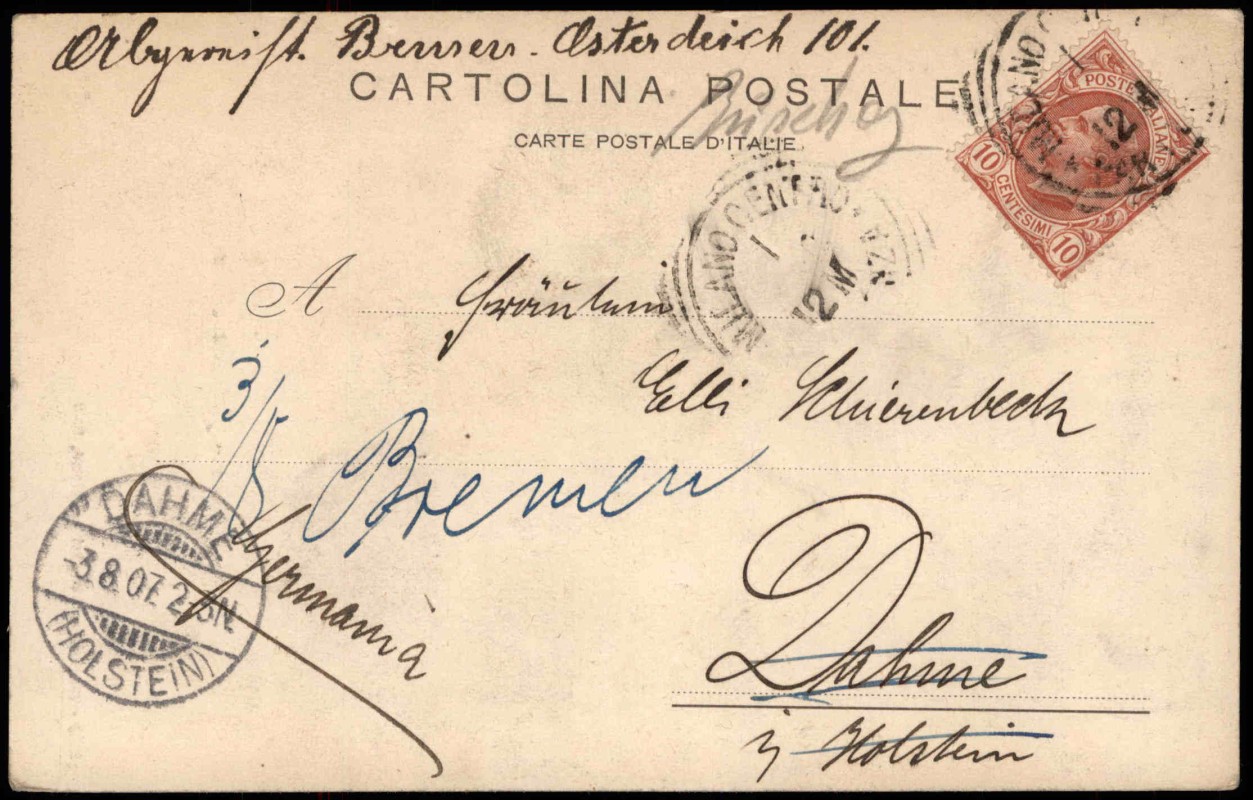 Abgereist. Bremen. Osterdeich 101.
CARTOLINA POSTALE
CARTE POSTALE D'ITALIE
POSTE ITALIANE
10 CENTESIMI 10
MILANO
12
MILANO CENTRO
1
12 M
A Fräulein
Elli Schierenbeck
3/8 Bremen
DAHME
-3.8.07. 2-3N.
(HOLSTEIN)
Germania
Dahme
Holstein